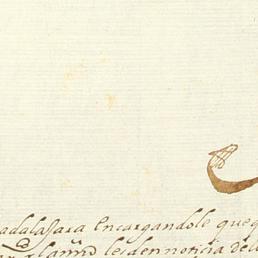 adalajara encargandole que
les den noticia de